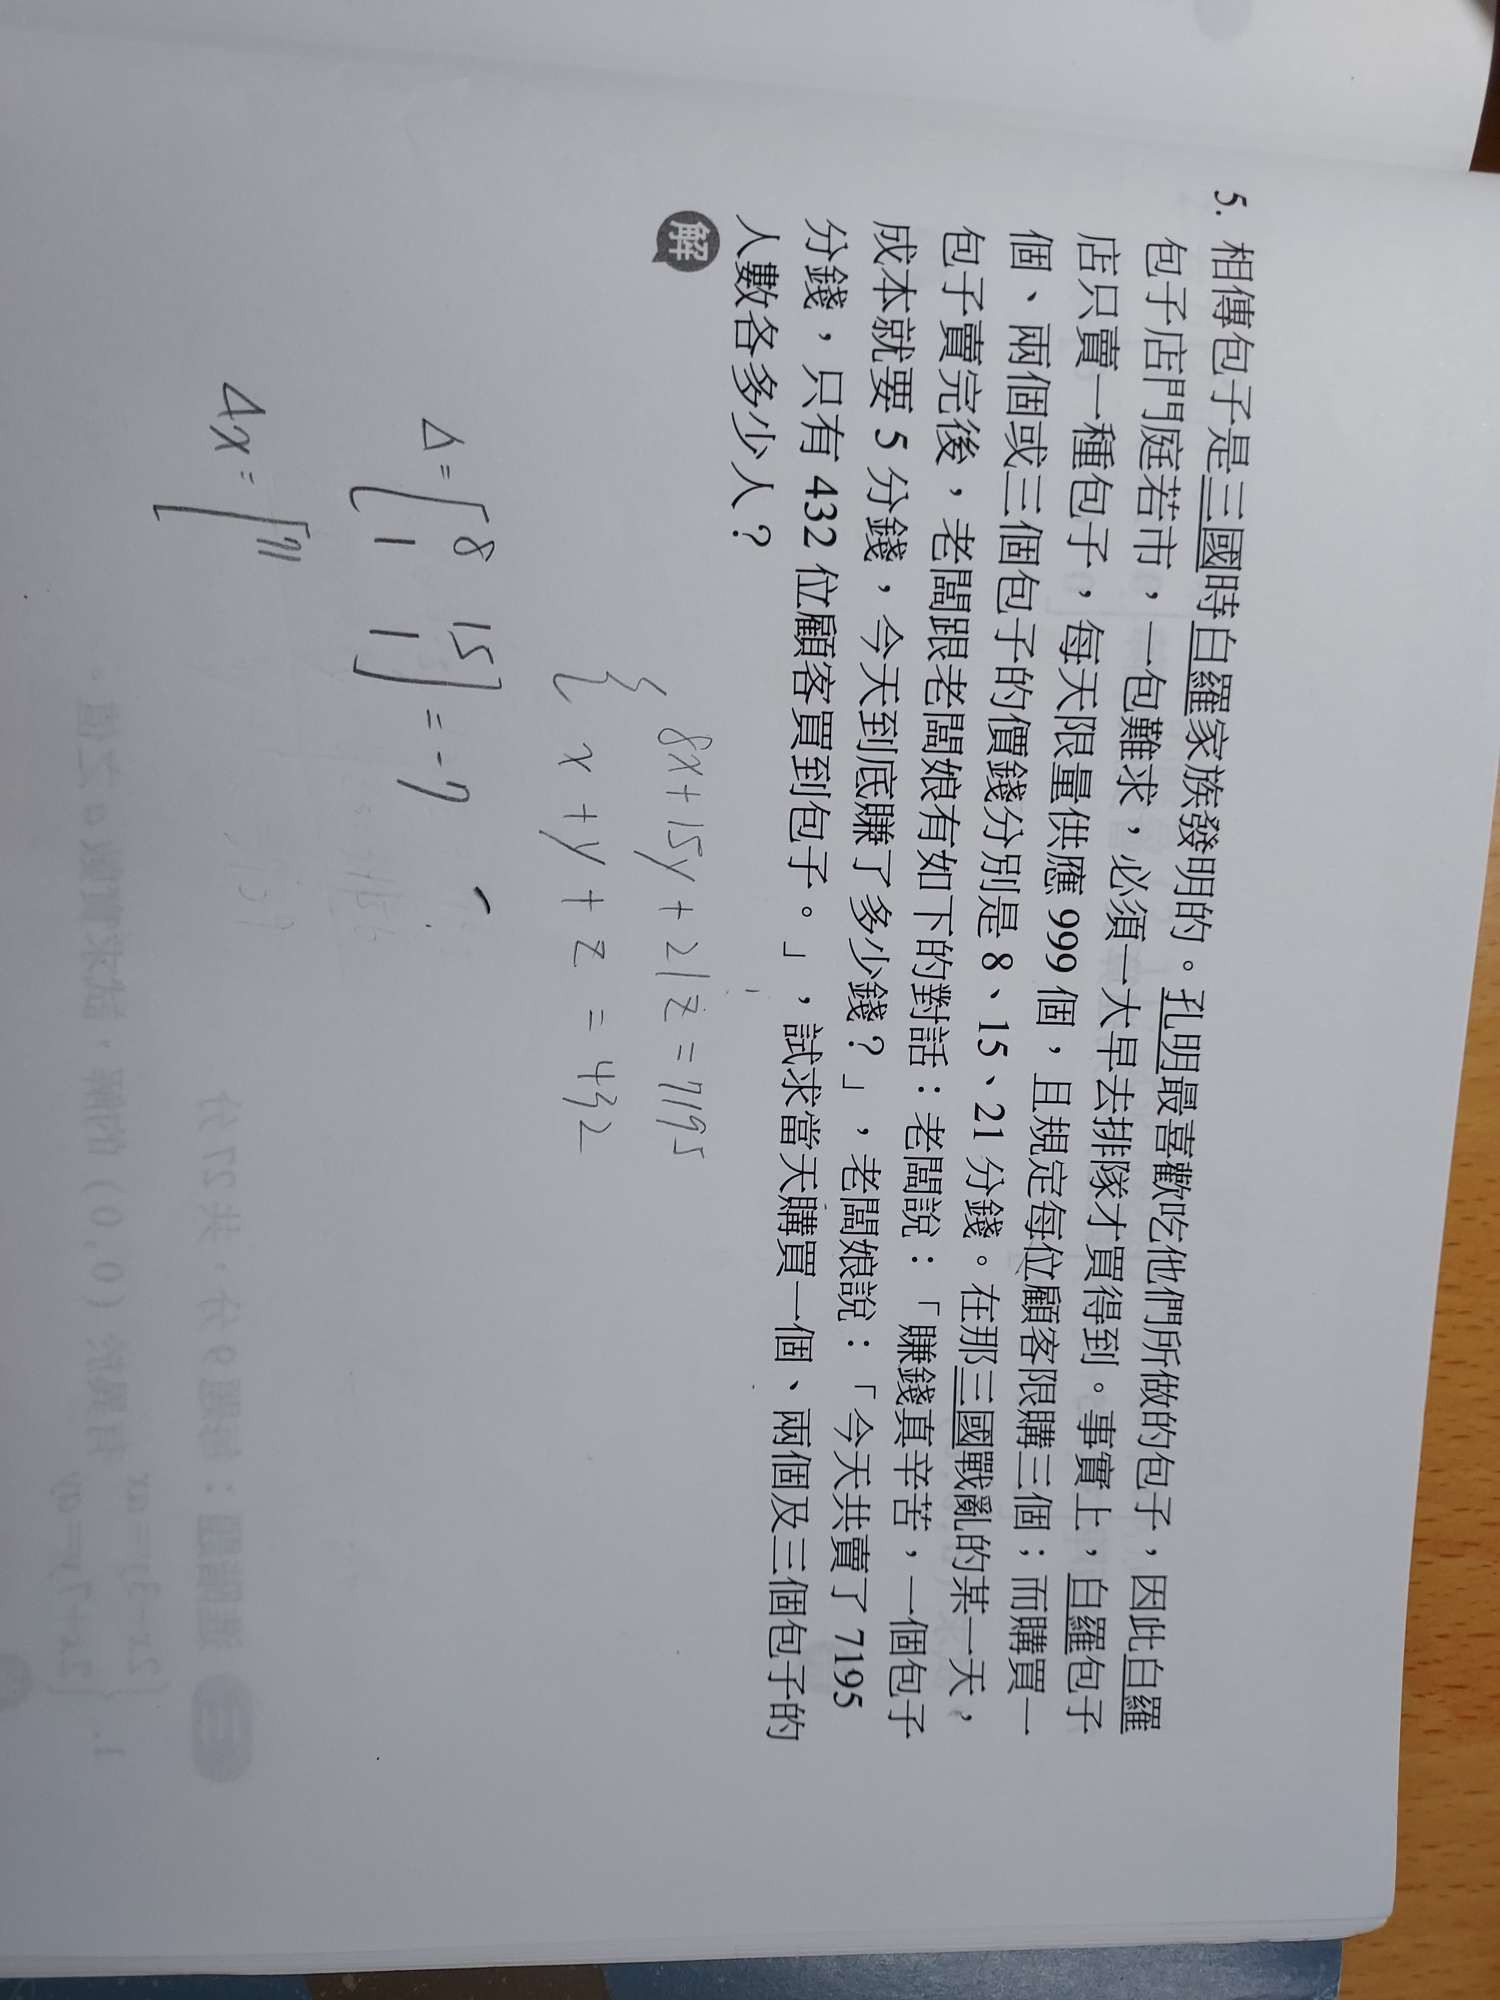 5. 相傳包子是三國時白羅家族發明的。孔明最喜歡吃他們所做的包子，因此白羅
包子店門庭若市，一包難求，必須一大早去排隊才買得到。事實上，白羅包子
店只賣一種包子，每天限量供應 999 個，且規定每位顧客限購三個；而購買一
個、兩個或三個包子的價錢分別是 8、15、21 分錢。在那三國戰亂的某一天，
包子賣完後，老闆跟老闆娘有如下的對話：老闆說：「賺錢真辛苦，一個包子
成本就要 5 分錢，今天到底賺了多少錢？」，老闆娘說：「今天共賣了 7195
分錢，只有 432 位顧客買到包子。」，試求當天購買一個、兩個及三個包子的
人數各多少人？
解
8x+15y+21z=7195
x+y+z=432
Δ=
8 15
1 1
=-7
Δx=
71